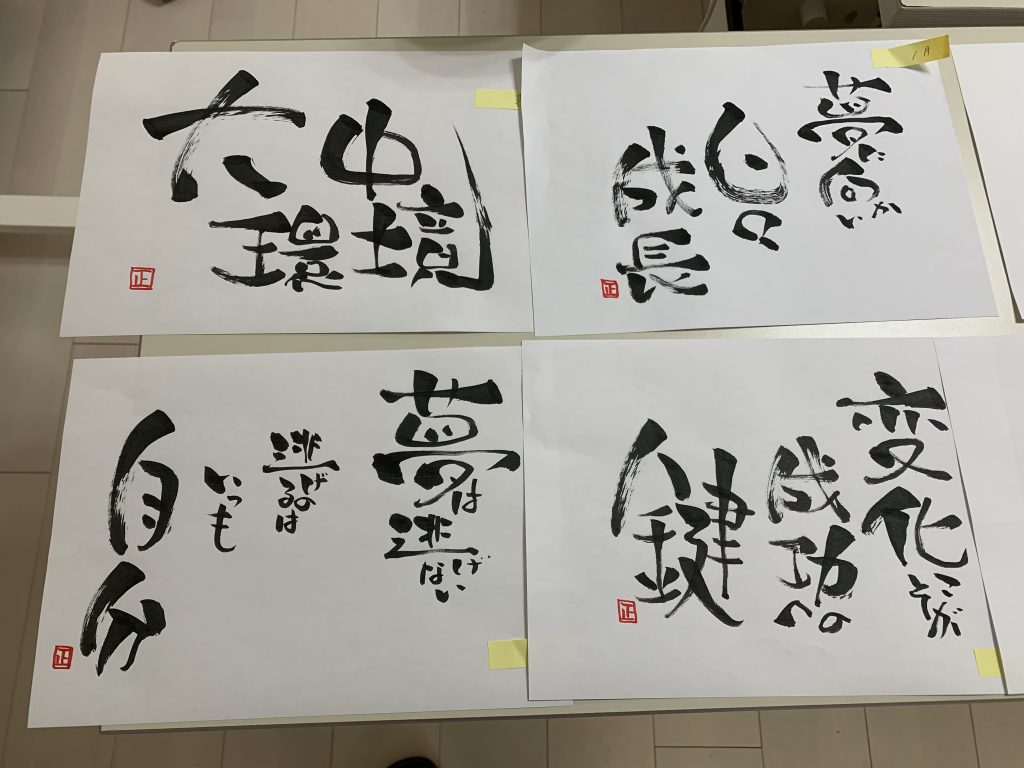 大中
環境
正
1月
夢に
向かい
日々
成長
正
夢は
逃げない
逃げるのは
いつも
自分
正
変化こそが
成功への
鍵
正